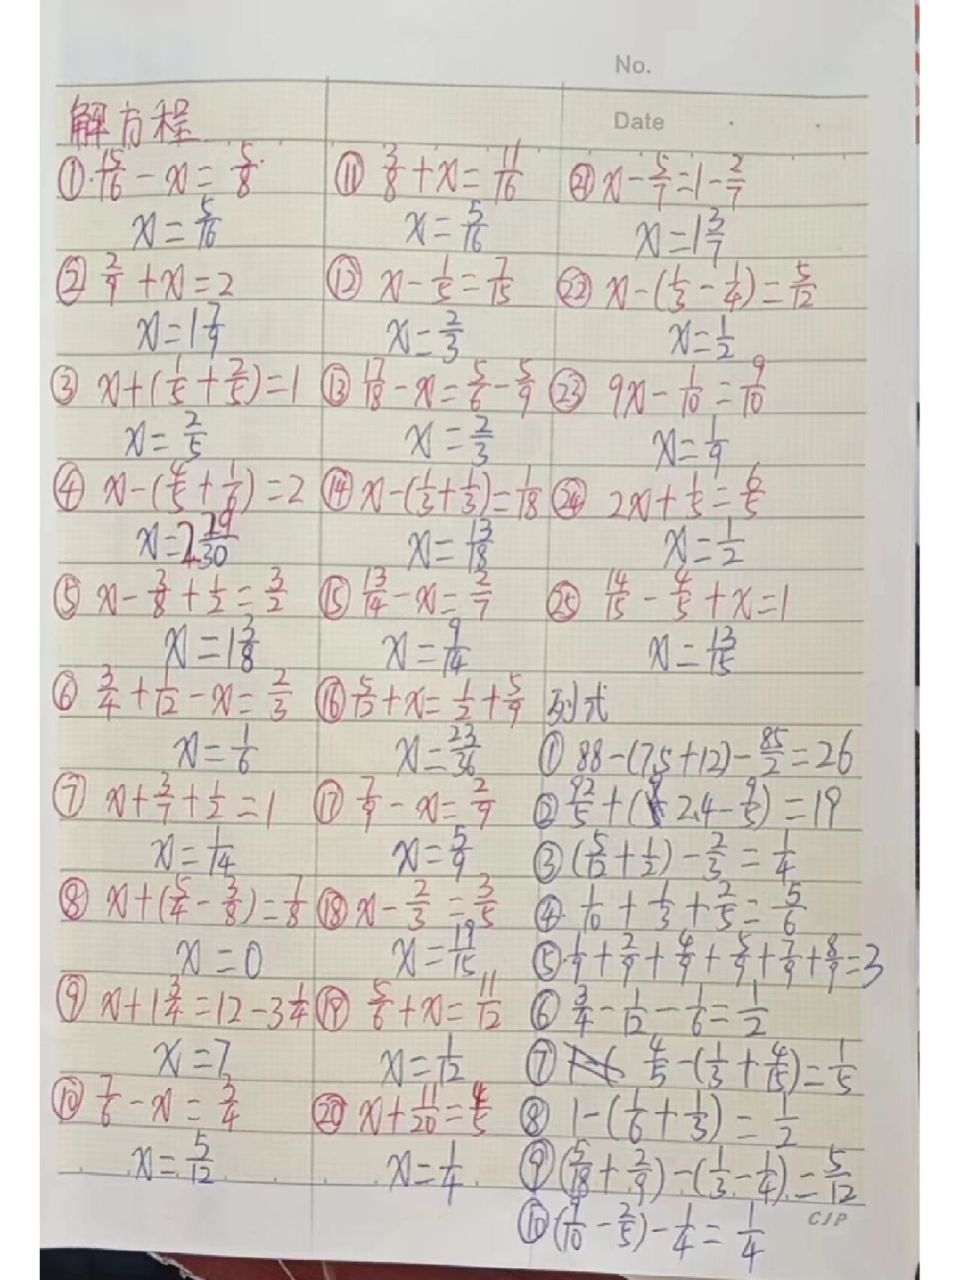 No.
Date
解方程
① 15/16 - x = 5/8
x = 5/16
② 2/9 + x = 2
x = 1 7/9
③ x + (1/5 + 2/5) = 1
x = 2/5
④ x - (4/5 + 1/6) = 2
x = 2 29/30
⑤ x - 3/8 + 1/2 = 3/2
x = 1 3/8
⑥ 3/4 + 1/12 - x = 2/3
x = 1/6
⑦ x + 3/7 + 1/2 = 1
x = 1/14
⑧ x + (5/4 - 3/8) = 7/8
x = 0
⑨ x + 1 3/4 = 12 - 3 1/4
x = 7
⑩ 7/6 - x = 3/4
x = 5/12
⑪ 3/8 + x = 11/16
x = 5/16
⑫ x - 1/5 = 7/15
x = 2/3
⑬ 17/18 - x = 5/6 - 5/9
x = 2/3
⑭ x - (1/3 + 1/3) = 1/18
x = 13/18
⑮ 13/14 - x = 2/7
x = 9/14
⑯ 5/12 + x = 1/2 + 5/9
x = 23/36
⑰ 7/9 - x = 2/9
x = 5/9
⑱ x - 2/3 = 3/5
x = 19/15
⑲ 5/6 + x = 11/12
x = 1/12
⑳ x + 11/20 = 4/5
x = 1/4
㉑ x - 5/7 = 1 - 2/7
x = 1 3/7
㉒ x - (1/3 - 1/4) = 5/12
x = 1/2
㉓ 9x - 1/10 = 9/10
x = 1/9
㉔ 2x + 1/5 = 6/5
x = 1/2
㉕ 14/15 - 4/5 + x = 1
x = 13/15
列式
① 88 - (7.5 + 12) - 85/2 = 26
② 92/5 + (2.4 - 9/5) = 19
③ (5/12 + 1/2) - 2/3 = 1/4
④ 1/10 + 1/3 + 2/5 = 5/6
⑤ 1/9 + 2/9 + 4/9 + 5/9 + 7/9 + 8/9 = 3
⑥ 3/4 - 1/12 - 1/6 = 1/2
⑦ 4/5 - (1/3 + 4/15) = 1/5
⑧ 1 - (1/6 + 1/3) = 1/2
⑨ (5/18 + 2/9) - (1/3 - 1/4) = 5/12
⑩ (9/10 - 2/5) - 1/4 = 1/4
CJP